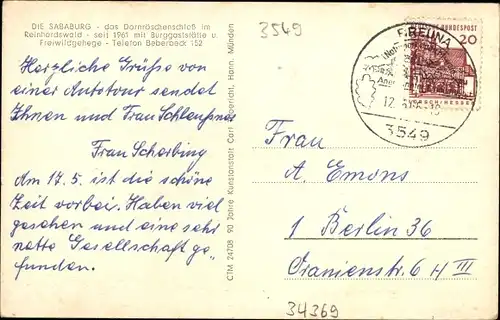 DIE SABABURG - das Dornröschenschloß im
Reinhardswald - seit 1961 mit Burggaststätte u.
Freiwildgehege - Telefon Beberbeck 152
Herzliche Grüße von
einer Autotour sendet
Ihnen und Frau Schleußner
Frau Scherbing
Am 17.5. ist die schöne
Zeit vorbei. Haben viel
gesehen und eine sehr
nette Gesellschaft ge-
funden.
CTM 24708 90 Jahre Kunstanstalt Carl Hann. Münden
3549
BUNDESPOST
20
3549
Frau
A. Emons
1 Berlin 36
Oranienstr. 6 H III
34369